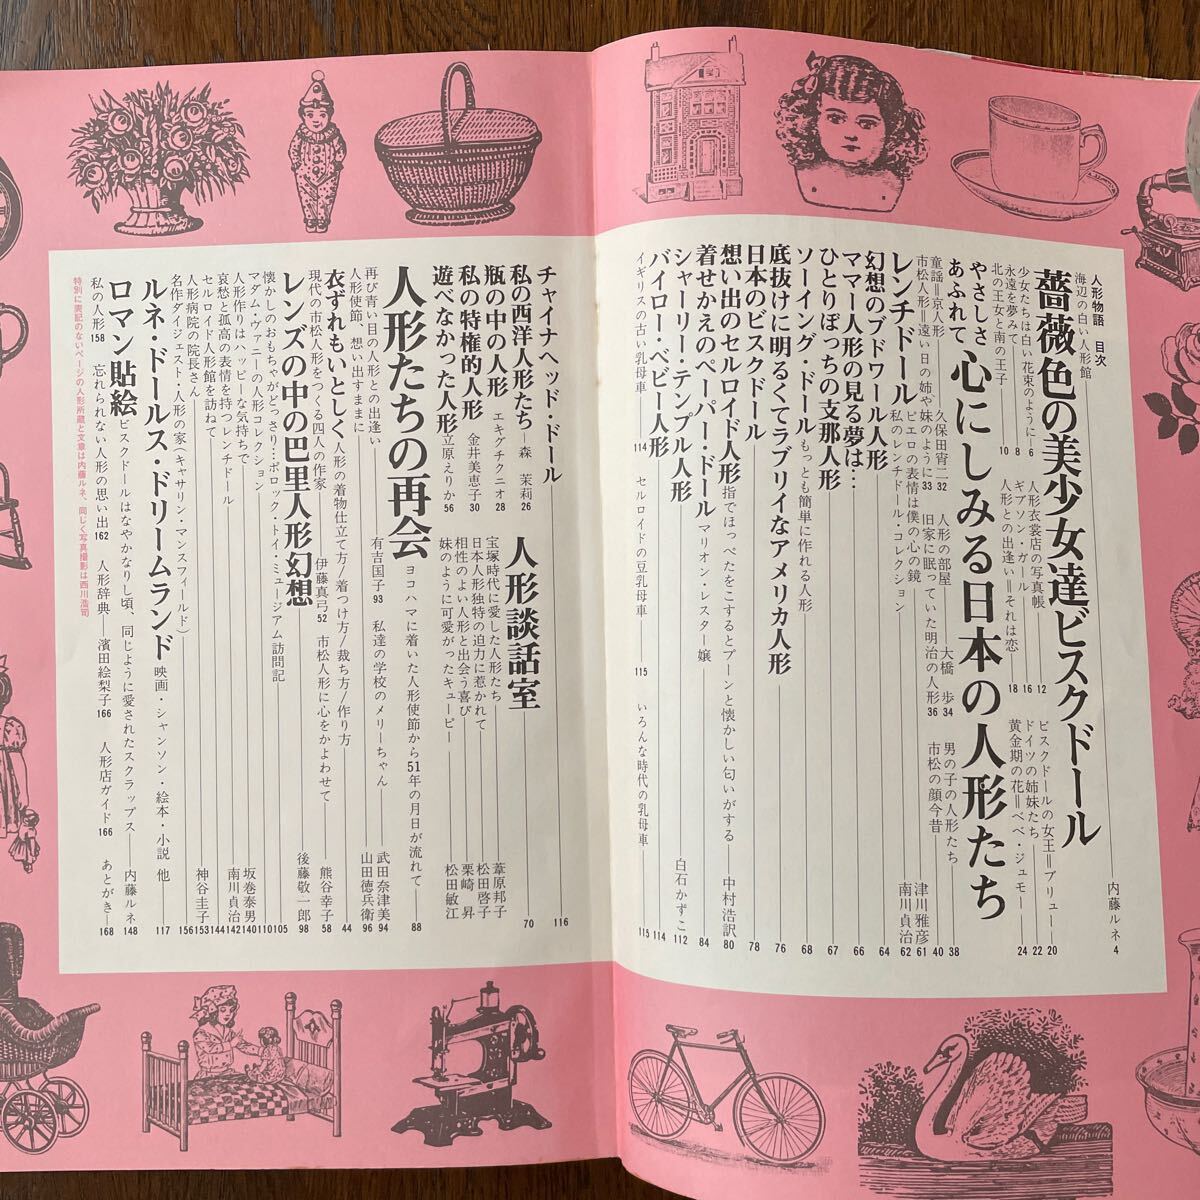 人形物語 目次
海辺の白い人形館 内藤ルネ 4
薔薇色の美少女達ビスクドール
少女たちは白い花束のように 6
永遠を夢みて 8
北の王女と南の王子 10
人形衣裳店の写真帳 12
ギブソン・ガール 16
人形との出逢い=それは恋 18
ビスクドールの女王=ブリュー 20
ドイツの姉妹たち 22
黄金期の花=ベベ・ジュモー 24
やさしさあふれて 心にしみる日本の人形たち
童謡=京人形 久保田宵二 32
市松人形=遠い日の姉や妹のように 33
人形の部屋 大橋 歩 34
旧家に眠っていた明治の人形 36
男の子の人形たち 38
市松の顔今昔 40
レンチドール
ピエロの表情は僕の心の鏡 津川雅彦 61
私のレンチドール・コレクション 南川貞治 62
幻想のブドワール人形 64
ママー人形の見る夢は… 66
ひとりぼっちの支那人形 67
ソーイング・ドール もっとも簡単に作れる人形 68
底抜けに明るくてラブリイなアメリカ人形 76
日本のビスクドール 78
想い出のセルロイド人形 指でほっぺたをこするとプーンと懐かしい匂いがする 80
着せかえのペーパー・ドール マリオン・レスター嬢 中村浩訳 84
シャーリー・テンプル人形 白石かずこ 112
バイロー・ベビー人形 114
イギリスの古い乳母車 114
セルロイドの豆乳母車 115
いろんな時代の乳母車 115
チャイナヘッド・ドール 116
私の西洋人形たち 森 茉莉 26
瓶の中の人形 エキグチクニオ 28
私の特権的人形 金井美恵子 30
遊べなかった人形 立原えりか 56
人形談話室 70
宝塚時代に愛した人形たち 葦原邦子
日本人形独特の迫力に惹かれて 松田啓子
相性のよい人形と出会う喜び 栗崎 昇
妹のように可愛がったキューピー 松田敏江
人形たちの再会 ヨコハマに着いた人形使節から51年の月日が流れて 88
再び青い目の人形との出逢い 有吉国子 93
私達の学校のメリーちゃん 武田奈津美 94
人形使節、想い出すままに 山田徳兵衛 96
衣ずれもいとしく 人形の着物仕立て方/着つけ方/裁ち方/作り方 44
現代の市松人形をつくる四人の作家 伊藤真弓 52
市松人形に心をかよわせて 熊谷幸子 58
レンズの中の巴里人形幻想 後藤敬一郎 98
懐かしのおもちゃがどっさり…ポロック・トイ・ミュージアム訪問記 105
マダム・ヴァニーの人形コレクション 110
人形作りはハッピーな気持ちで 坂巻泰男 140
哀愁と孤高の表情を持つレンチドール 南川貞治 142
セルロイド人形館を訪ねて 144
人形病院の院長さん 神谷圭子 153
名作ダイジェスト・人形の家(キャサリン・マンスフィールド) 156
ルネ・ドールス・ドリームランド 映画・シャンソン・絵本・小説 他 117
ロマン貼絵 ビスクドールはなやかなりし頃、同じように愛されたスクラップス 内藤ルネ 148
私の人形 158
忘れられない人形の思い出 162
人形辞典 濱田絵梨子 166
人形店ガイド 166
あとがき 168
特別に表記のないページの人形所蔵と文章は内藤ルネ、同じく写真撮影は西川浩司